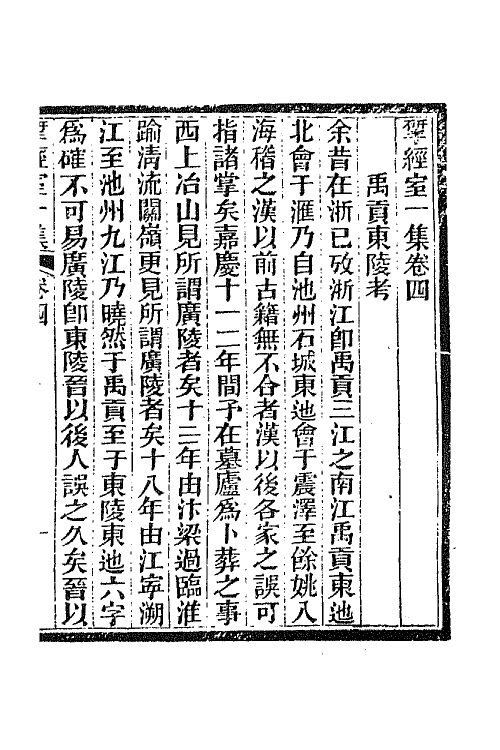 揅經室一集卷四
禹貢東陵考
余昔在浙已攷浙江卽禹貢三江之南江禹貢東迆
北會于滙乃自池州石城東迆會于震澤至餘姚入
海稽之漢以前古籍無不合者漢以後各家之誤可
指諸掌矣嘉慶十一二年間予在墓廬爲卜葬之事
西上冶山見所謂廣陵者矣十三年由汴梁過臨淮
踰淸流關嶺更見所謂廣陵者矣十八年由江寕溯
江至池州九江乃曉然于禹貢至于東陵東迆六字
爲確不可易廣陵卽東陵晉以後人誤之久矣晉以
揅經室一集 卷四